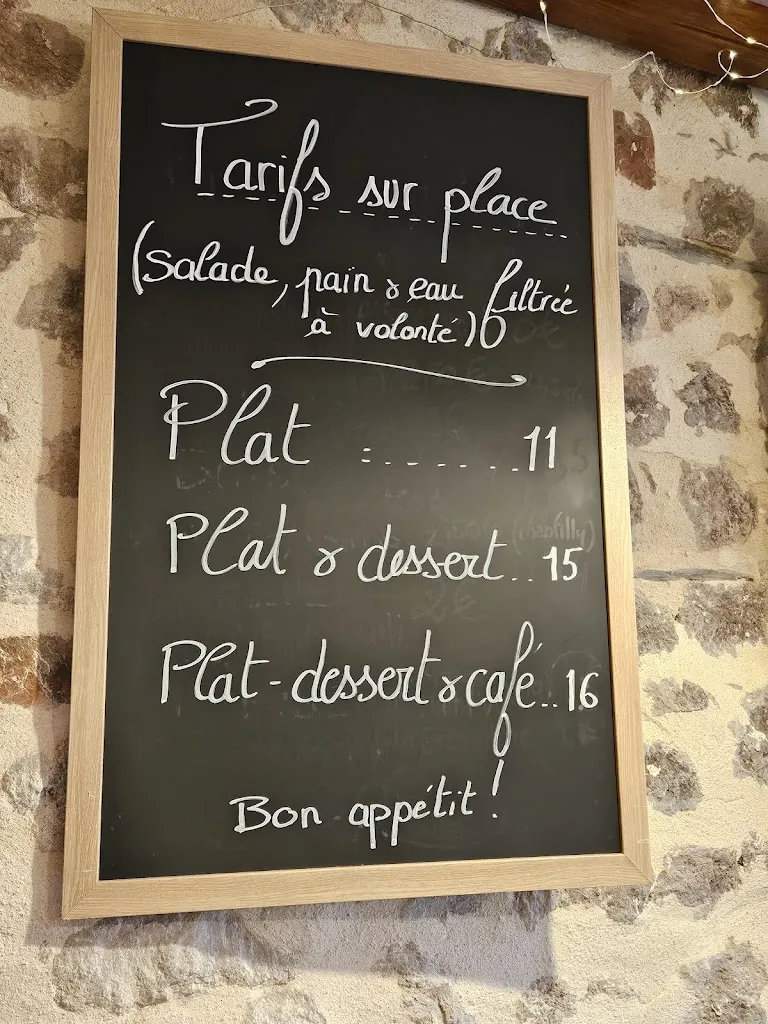 Tarifs sur place
(salade, pain & eau filtrée
à volonté)
Plat ........ 11
Plat & dessert .. 15
Plat - dessert & café .. 16
Bon appétit !